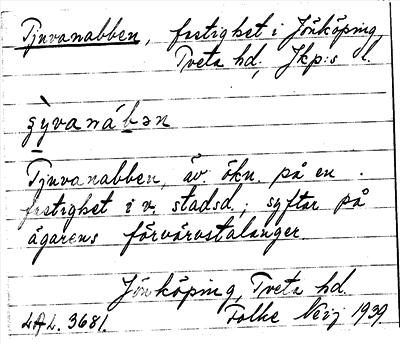 Tjuvanabben, fastighet i Jönköping,
Tveta hd, Jkp:s l.
ʂỳvanábən
Tjuvanabben, äv. ökn. på en
fastighet i v. stadsd.; syftar på
ägarens förvärvstalanger.
Jönköping, Tveta hd.
LAL. 3681. Folke Neij 1939.